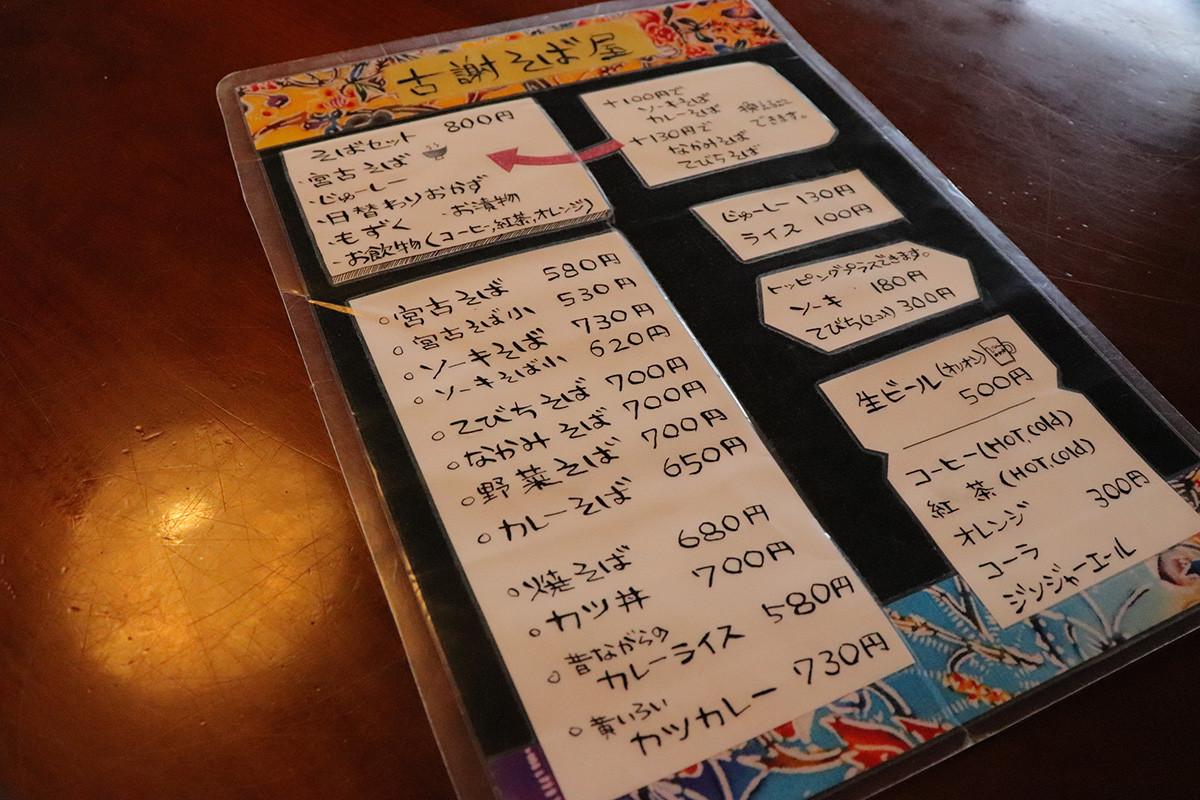 古謝そば屋
そばセット 800円
・宮古そば
・じゅーしー
・日替わりおかず
・もずく ・お漬物
・お飲物(コーヒー,紅茶,オレンジ)
+100円で
ソーキそば
カレーそば
+130円で
なかみそば
てびちそば
できます。
じゅーしー 130円
ライス 100円
トッピングプラスできます。
ソーキ 180円
てびち(2コ入) 300円
生ビール(オリオン)
500円
コーヒー(HOT,cold)
紅茶(HOT,cold)
オレンジ 300円
コーラ
ジンジャーエール
○宮古そば 580円
○宮古そば小 530円
○ソーキそば 730円
ソーキそば小 620円
○てびちそば 700円
○なかみそば 700円
○野菜そば 700円
○カレーそば 650円
○焼そば 680円
○カツ丼 700円
○昔ながらの
カレーライス 580円
○黄いろい
カツカレー 730円